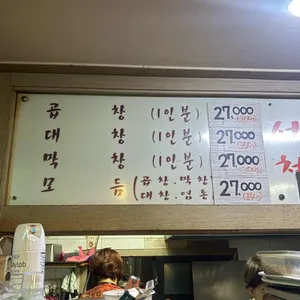 곱 창 (1인분) 27,000 (300g)
대 창 (1인분) 27,000 (350g)
막 창 (1인분) 27,000
모 듬 (곱창.막창 대창.염통) 27,000 (350g)